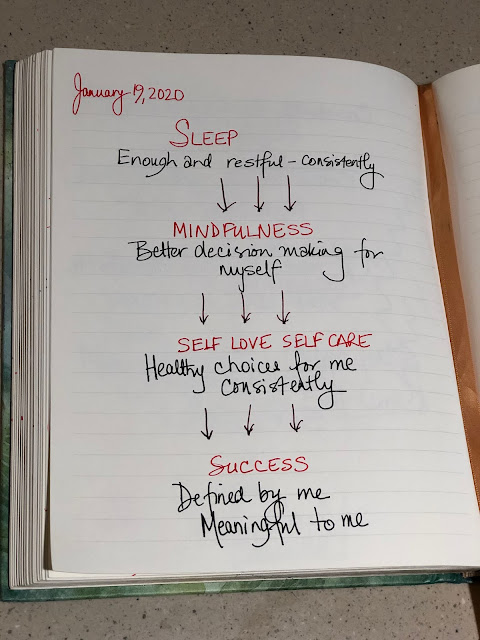 January 19, 2020
SLEEP
Enough and restful - consistently
MINDFULNESS
Better decision making for
myself
SELF LOVE SELF CARE
Healthy choices for me
consistently
SUCCESS
Defined by me
Meaningful to me